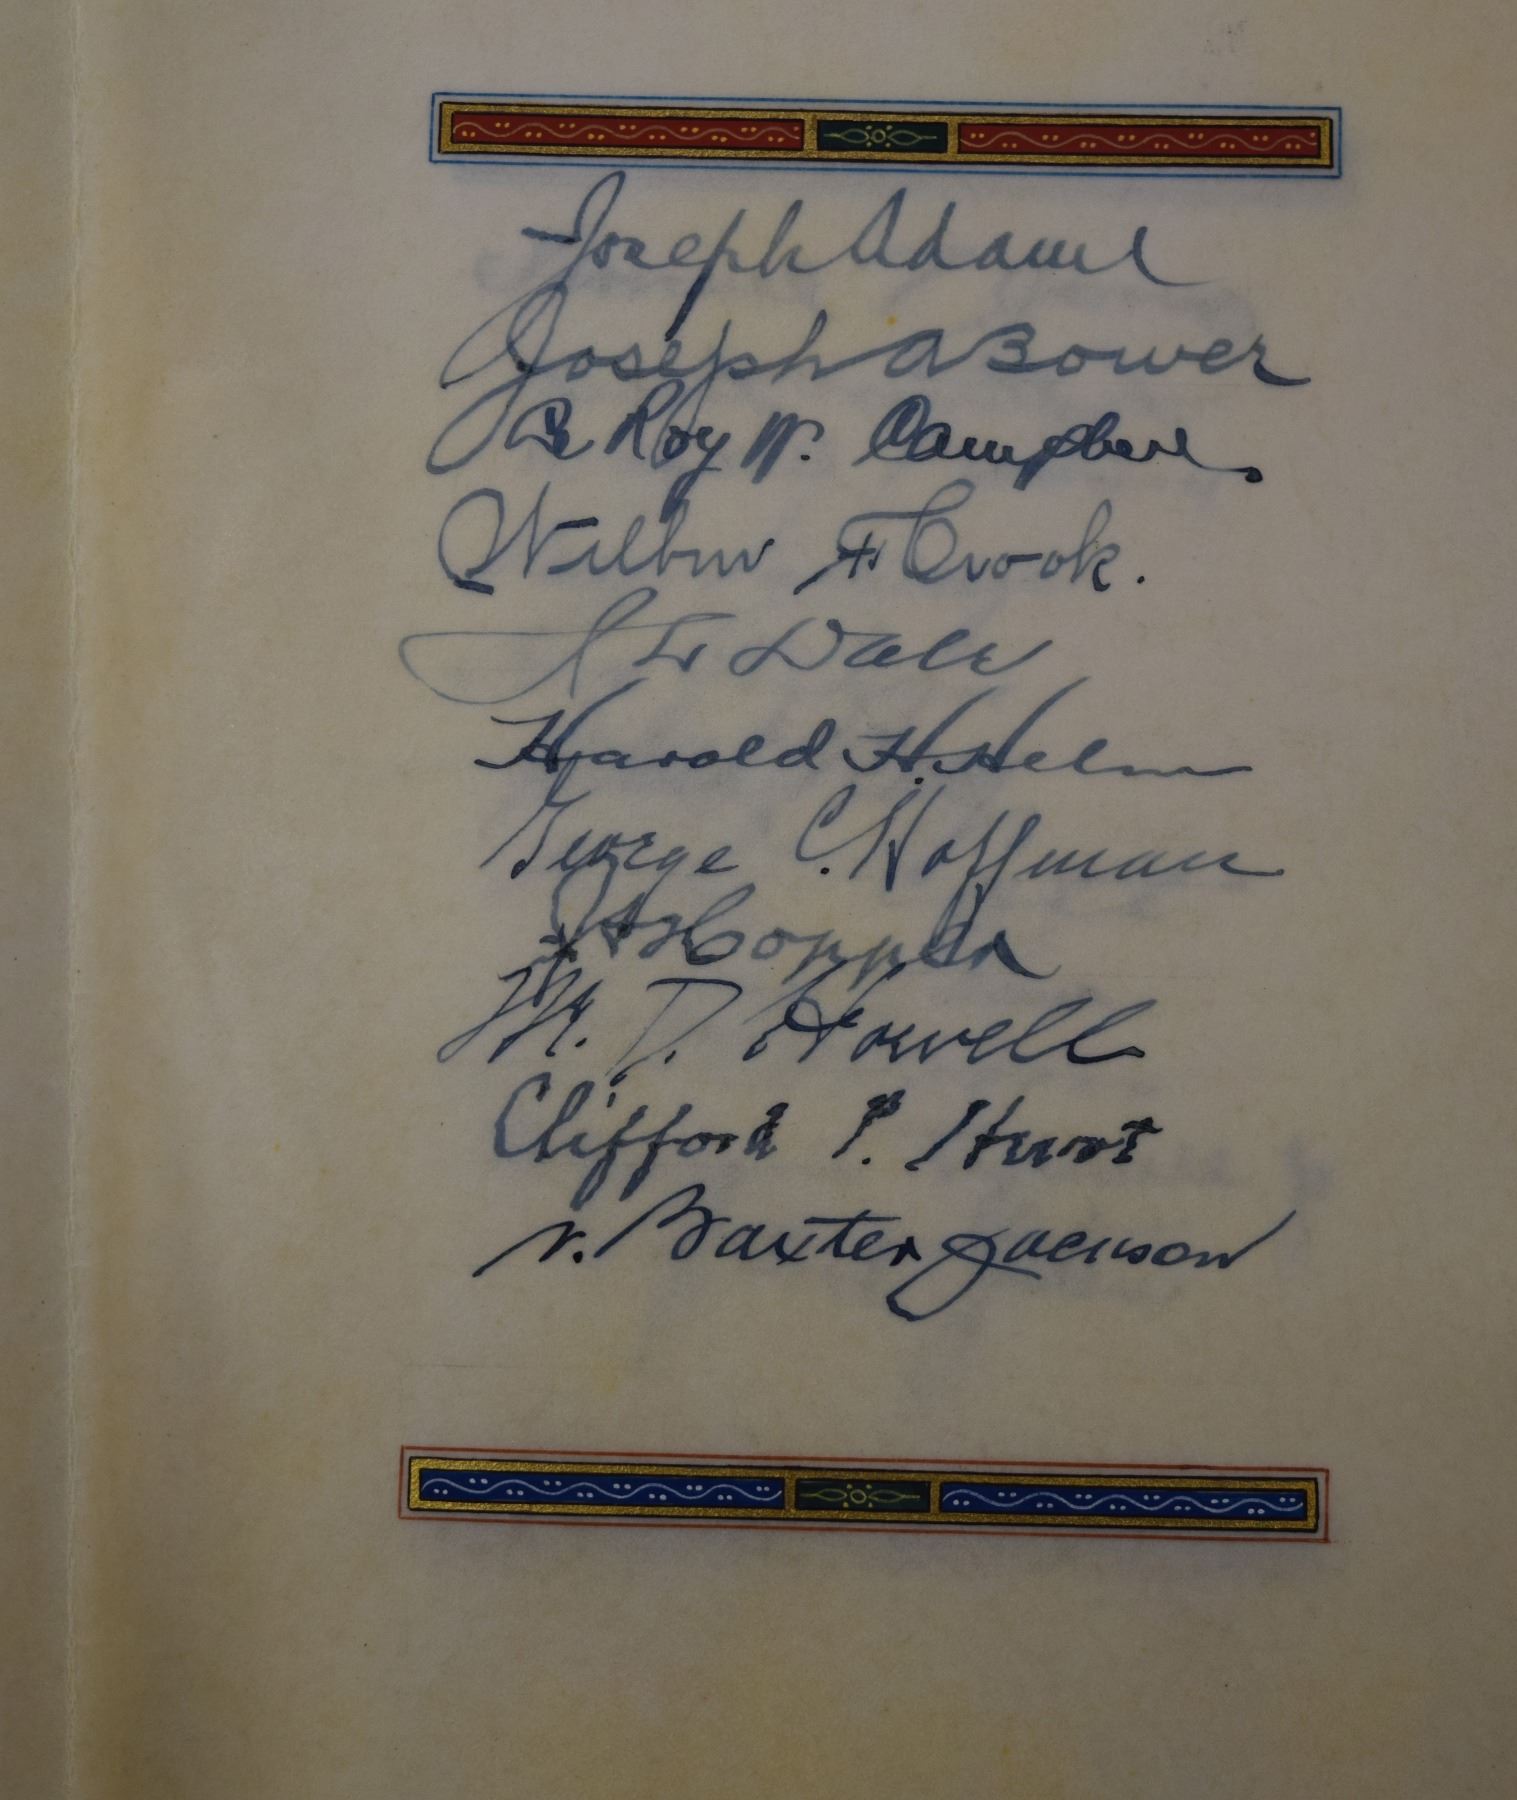 Joseph Adams
Joseph A Bower
LeRoy W. Campbell
Wilbur F Crook.
Dale
Harold H. Helm
George C. Hoffman
Hopper
M. D. Howell
Clifford P. Hunt
N. Baxter Jackson